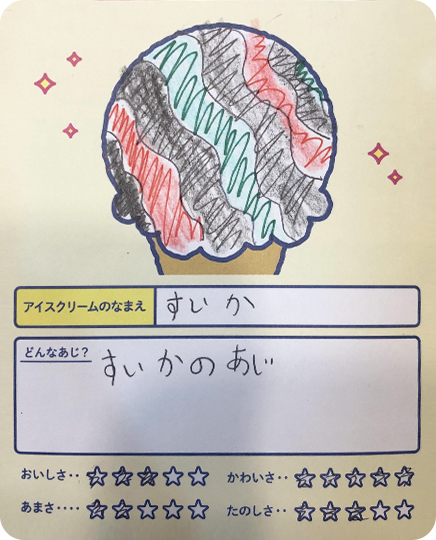 アイスクリームのなまえ すいか
どんなあじ?
すいかのあじ
おいしさ‥ ★★★☆☆ かわいさ‥ ★★★★★
あまさ‥‥ ★★☆☆☆ たのしさ‥ ★★★☆☆